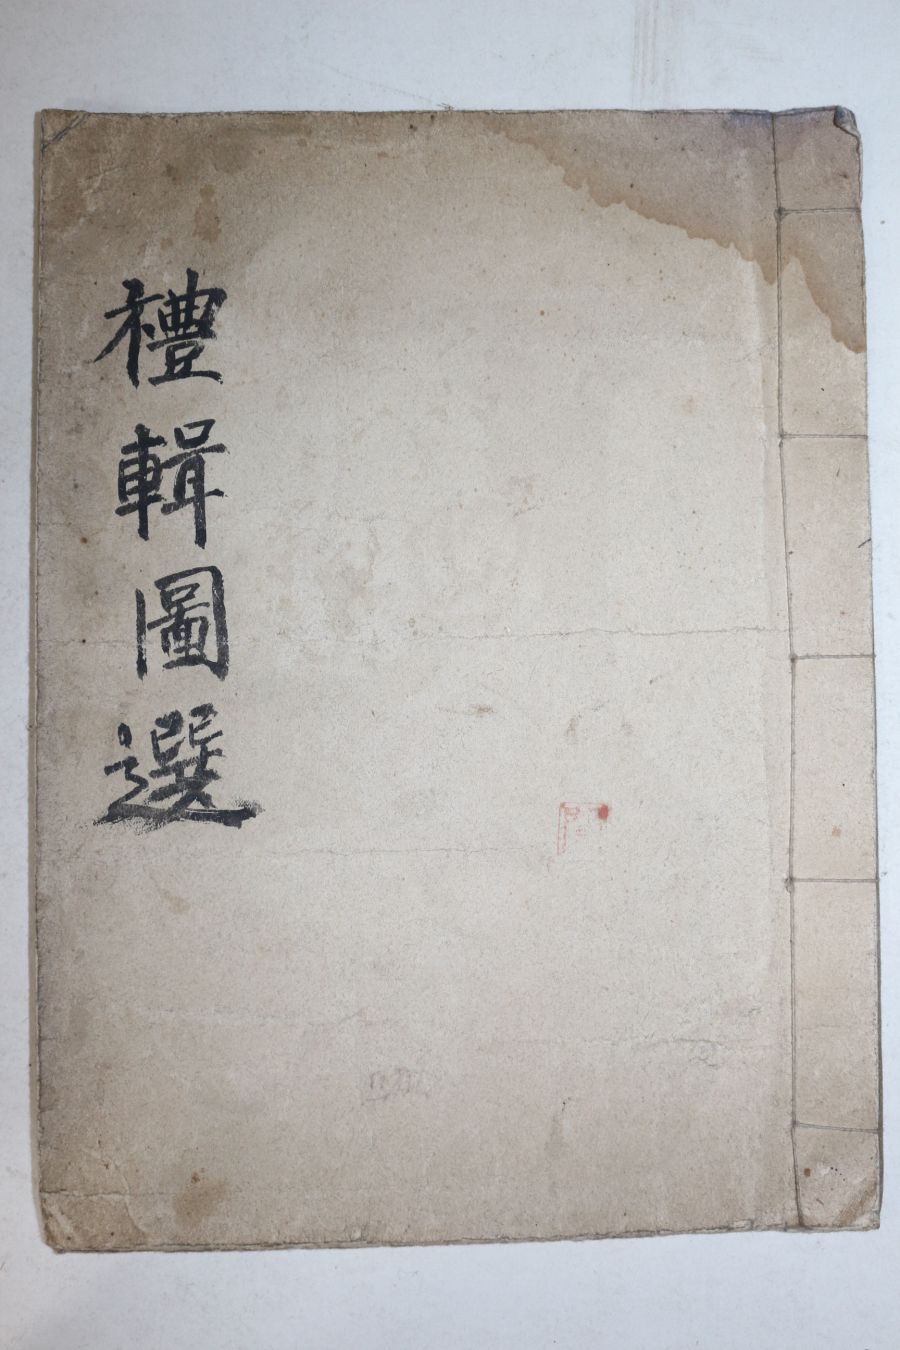 禮輯圖選